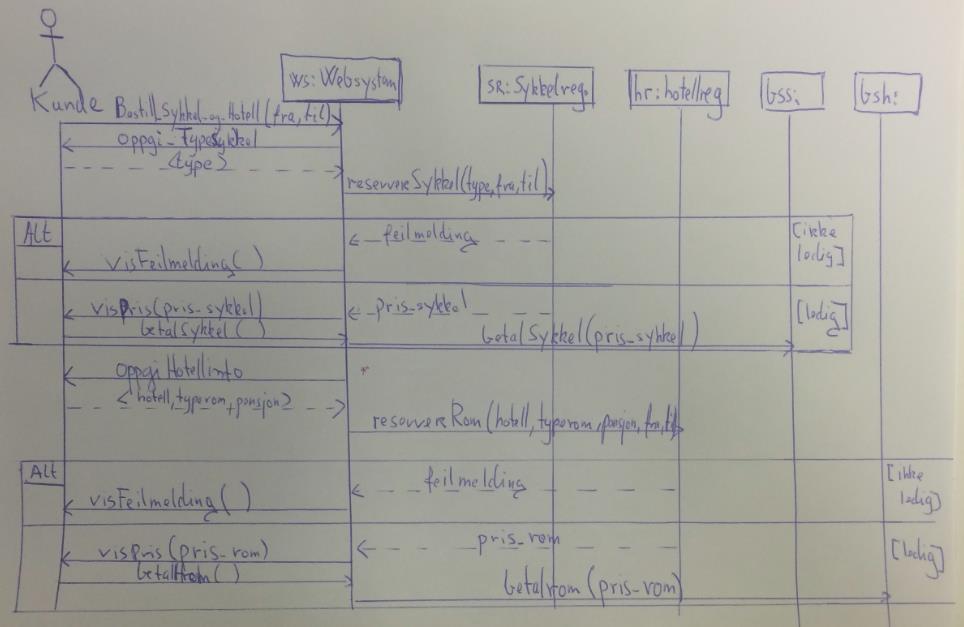 ws:Websystem
sr:Sykkelreg.
hr:hotellreg
bss:
bsh:
Kunde
Bestill_Sykkel_og_Hotell(fra,til)
oppgi_TypeSykkel
<type>
reservereSykkel(type,fra,til)
Alt
feilmelding
[ikke
ledig]
visFeilmelding( )
visPris(pris_sykkel)
pris_sykkel
[ledig]
betalSykkel( )
betalSykkel(pris_sykkel)
oppgiHotellinfo
<hotell,typerom,pensjon>
reservereRom(hotell,typerom,pensjon,fra,til)
Alt
feilmelding
[ikke
ledig]
visFeilmelding( )
pris_rom
visPris(pris_rom)
[ledig]
( )
betalrom(pris_rom)